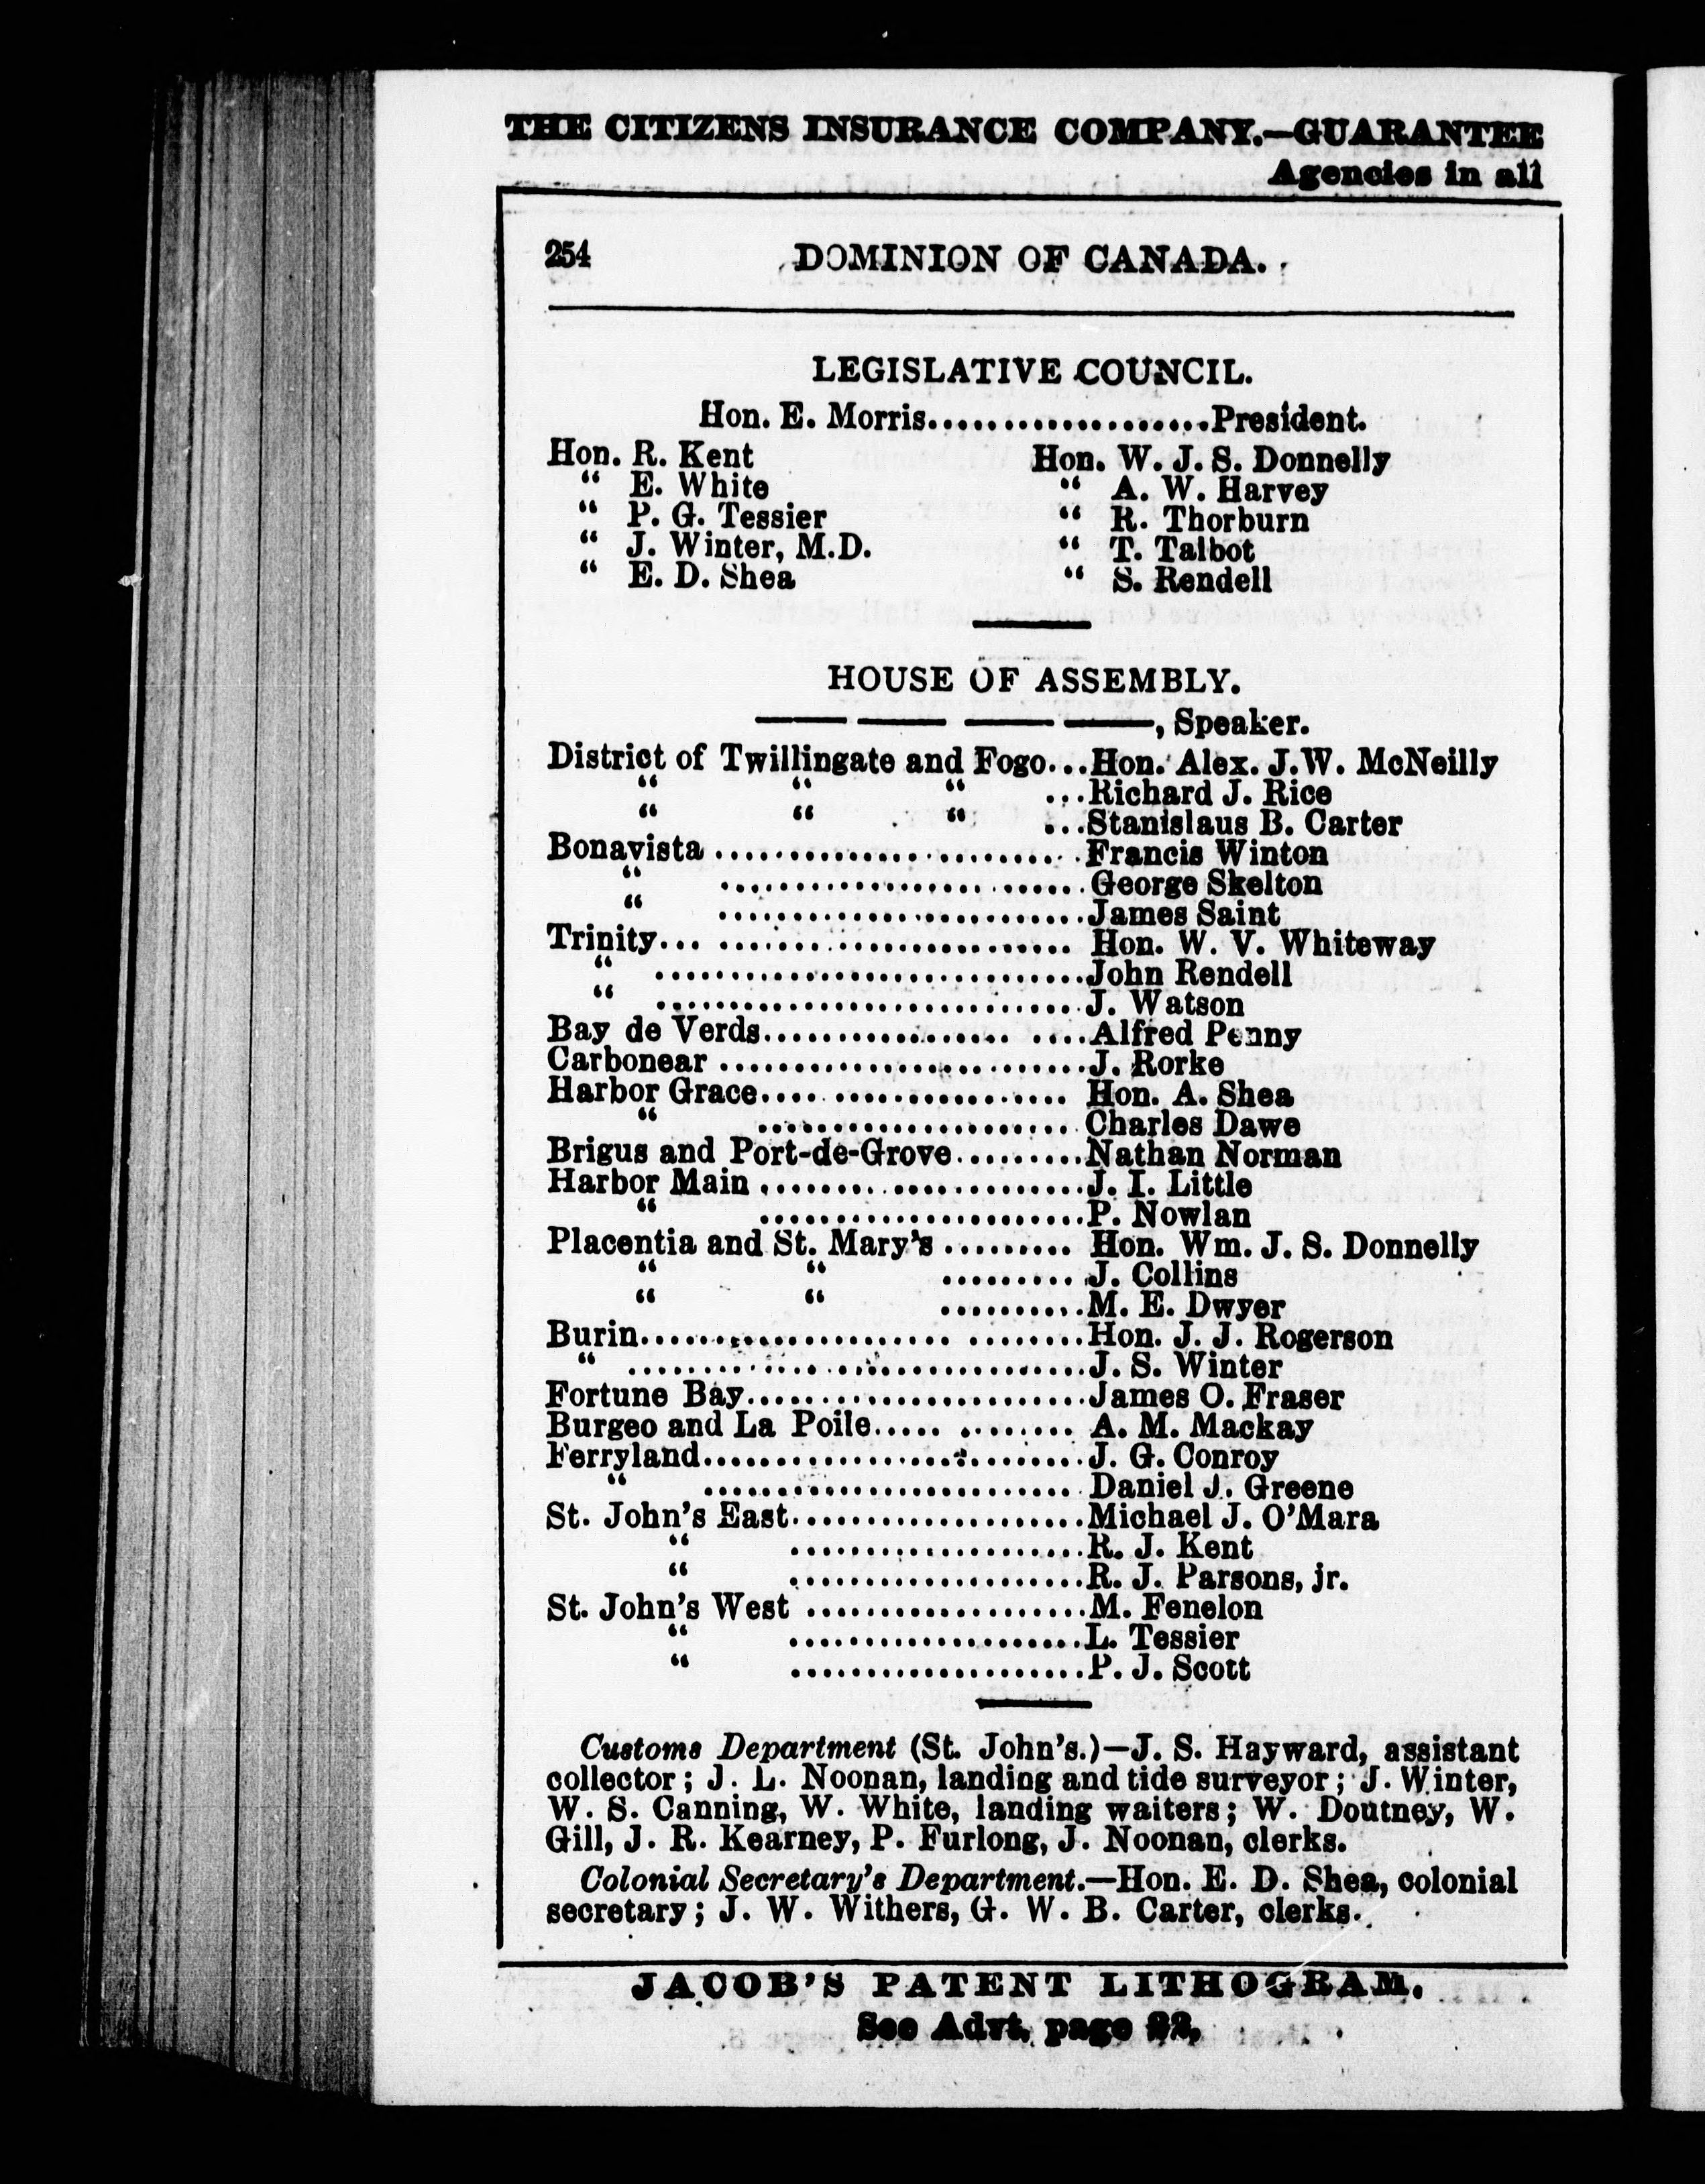 THE CITIZENS INSURANCE COMPANY.—GUARANTEE
Agencies in all
254 DOMINION OF CANADA.
LEGISLATIVE COUNCIL.
Hon. E. Morris...................President.
Hon. R. Kent Hon. W. J. S. Donnelly
“ E. White “ A. W. Harvey
“ P. G. Tessier “ R. Thorburn
“ J. Winter, M.D. “ T. Talbot
“ E. D. Shea “ S. Rendell
HOUSE OF ASSEMBLY.
— — — —, Speaker.
District of Twillingate and Fogo...Hon. Alex. J.W. McNeilly
“ “ “ ...Richard J. Rice
“ “ “ ...Stanislaus B. Carter
Bonavista .........................Francis Winton
“ .........................George Skelton
“ .........................James Saint
Trinity... ......................... Hon. W. V. Whiteway
“ .............................John Rendell
“ .............................J. Watson
Bay de Verds................. ....Alfred Penny
Carbonear .........................J. Rorke
Harbor Grace.... ................ Hon. A. Shea
“ ..................... Charles Dawe
Brigus and Port-de-Grove.........Nathan Norman
Harbor Main ......................J. I. Little
“ ......................P. Nowlan
Placentia and St. Mary's ......... Hon. Wm. J. S. Donnelly
“ “ .........J. Collins
“ “ ..........M. E. Dwyer
Burin..................... ........Hon. J. J. Rogerson
“ ...............................J. S. Winter
Fortune Bay.......................James O. Fraser
Burgeo and La Poile..... ........ A. M. Mackay
Ferryland..........................J. G. Conroy
“ ......................... Daniel J. Greene
St. John's East....................Michael J. O'Mara
“ ....................R. J. Kent
“ ....................R. J. Parsons, jr.
St. John's West ...................M. Fenelon
“ ....................L. Tessier
“ ....................P. J. Scott
Customs Department (St. John's.)—J. S. Hayward, assistant
collector; J. L. Noonan, landing and tide surveyor; J. Winter,
W. S. Canning, W. White, landing waiters; W. Doutney, W.
Gill, J. R. Kearney, P. Furlong, J. Noonan, clerks.
Colonial Secretary's Department.—Hon. E. D. Shea, colonial
secretary; J. W. Withers, G. W. B. Carter, clerks.
JACOB'S PATENT LITHOGRAM.
See Advt. page